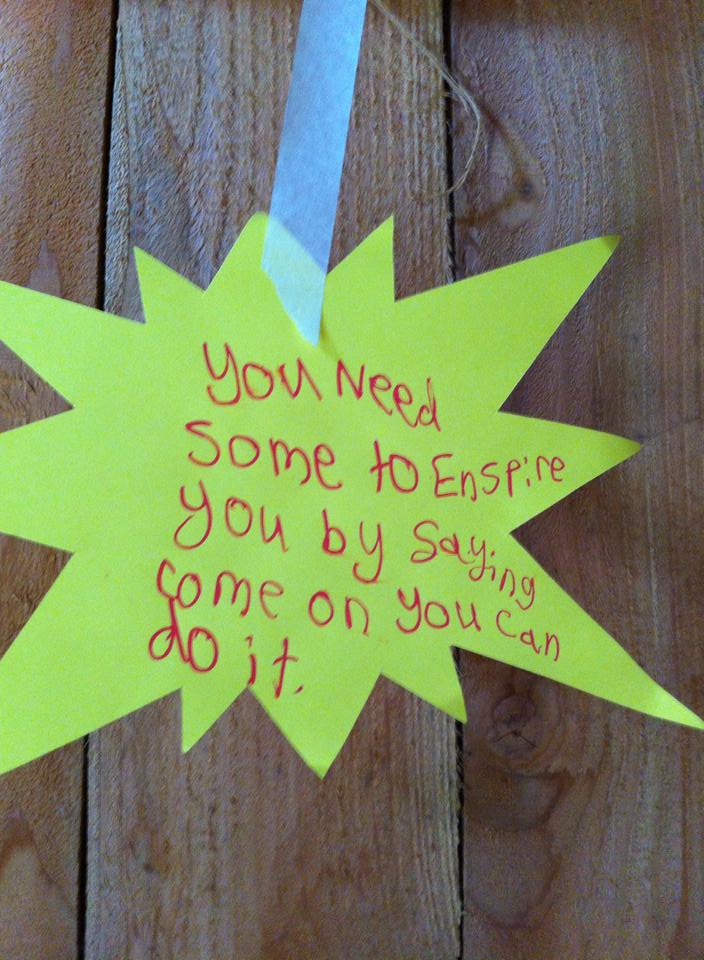 you Need
some to Enspire
you by saying
come on you can
do it.